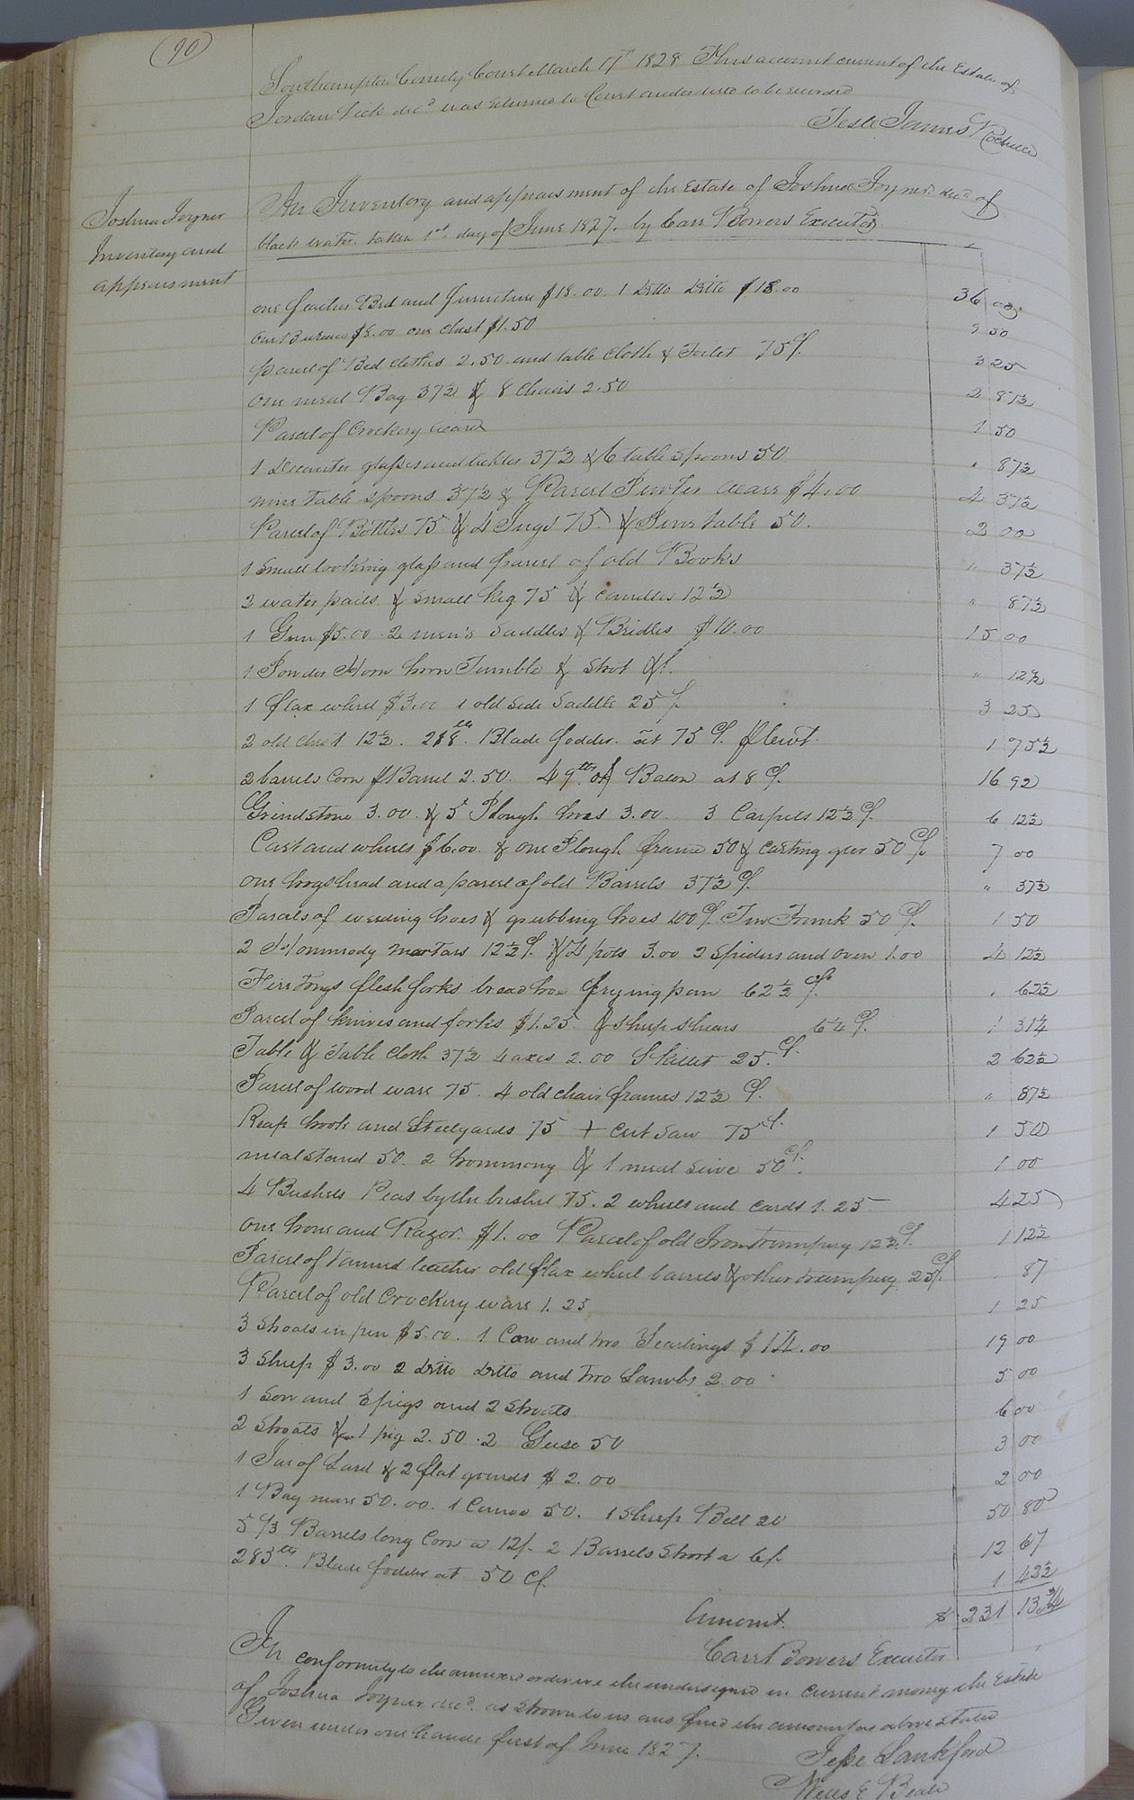 90
Southampton County Court March 17th 1828 This account current of the Estate of
Jordan Vick decd was returned to Court and ordered to be recorded
Teste James Rochelle
Joshua Joyner
Inventory and
appraisment
An Inventory and appraisment of the Estate of Joshua Joyner decd of
black water taken 1st day of June 1827. by Carr Bowers Executor
one feather Bed and furniture $18.00 1 Ditto Ditto $18.00 36 00
one Bureau $8.00 one chest $1.50 9 50
parcel of Bed clothes 2.50 and table cloth & Toilet 75 c/ 3 25
one meal Bag 37½ & 8 Chairs 2.50 2 87½
Parcel of Crockery ware 1 50
1 Decanter glasses and tickler 37½ & 6 table spoons 50 " 87½
nine table spoons 37½ & Parcel Pewter ware $4.00 4 37½
Parcel of Bottles 75 & 4 Jugs 75 & Pine table 50. 2 00
1 Small looking glass and parcel of old Books " 37½
2 water pails & small keg 75 & candles 12½ " 87½
1 Gun $5.00 2 men's Saddles & Bridles $10.00 15 00
1 Powder Horn horn Tumble & Shot &c. " 12½
1 flax wheel $3.00 1 old side Saddle 25 c/ 3 25
2 old chest 12½. 218 lb. Blade fodder at 75 c/. pr cwt. 1 75½
2 barrels Corn pr Barrel 2.50. 49 lb of Bacon at 8 c/. 16 92
Grindstone 3.00 & 5 Plough hoes 3.00 3 Carpels 12½ c/. 6 12½
Cart and wheels $6.00 & one Plough frame 50 & Carting geer 50 c/. 7 00
one hogshead and a parcel of old Barrels 37½ c/. " 37½
Parcels of weeding hoes & grubbing hoes 100 c/. Tin Trunk 50 c/. 1 50
2 Hommony mortars 12½ c/. & 4 pots 3.00 2 Spiders and oven 1.00 4 12½
Fire tongs flesh forks bread hoe frying pan 62½ c/. " 62½
Parcel of knives and forks $1.25 & sheep shears 6¼ c/. 1 31¼
Table & Table Cloth 37½ 4 axes 2.00 Skillet 25 c/. 2 62½
Parcel of wood ware 75. 4 old chair frames 12½ c/. " 87½
Reap hook and Steelyards 75 + cut Saw 75 c/. 1 50
meal stand 50. 2 hommony & 1 meal sieve 50 c/. 1 00
4 Bushels Peas by the bushel 75. 2 wheels and cards 1.25 4 25
one hone and Razor $1.00 Parcel of old Iron trumpery 12½ c/. 1 12½
Parcel of tanned leather old flax wheel barrels & other trumpery 25 c/. 87
Parcel of old Crockery ware 1.25 1 25
3 Shoats in pen $5.00. 1 Cow and two Yearlings $14.00 19 00
3 Sheep $3.00 2 ditto ditto and two Lambs 2.00 5 00
1 Sow and 3 pigs and 2 Shoats 6 00
2 Shoats & 1 pig 2.50. 2 Geese 50 3 00
1 Jar of Lard & 2 flat gourds $2.00 2 00
1 Bay mare 50.00. 1 Canoe 50. 1 Sheep Bell 20 50 80
5 ⅔ Barrels long Corn a 12/. 2 Barrels Short a 6/. 12 67
283 lb. Blade fodder at 50 c/. 1 42½
Amount. $ 231 13¾
Carr Bowers Executor
In conformity to the annexed order we the undersigned in current money the Estate
of Joshua Joyner decd. as shown to us and find the amount as above stated
Given under our hands first of June 1827.
Jesse Lankford
E Beale